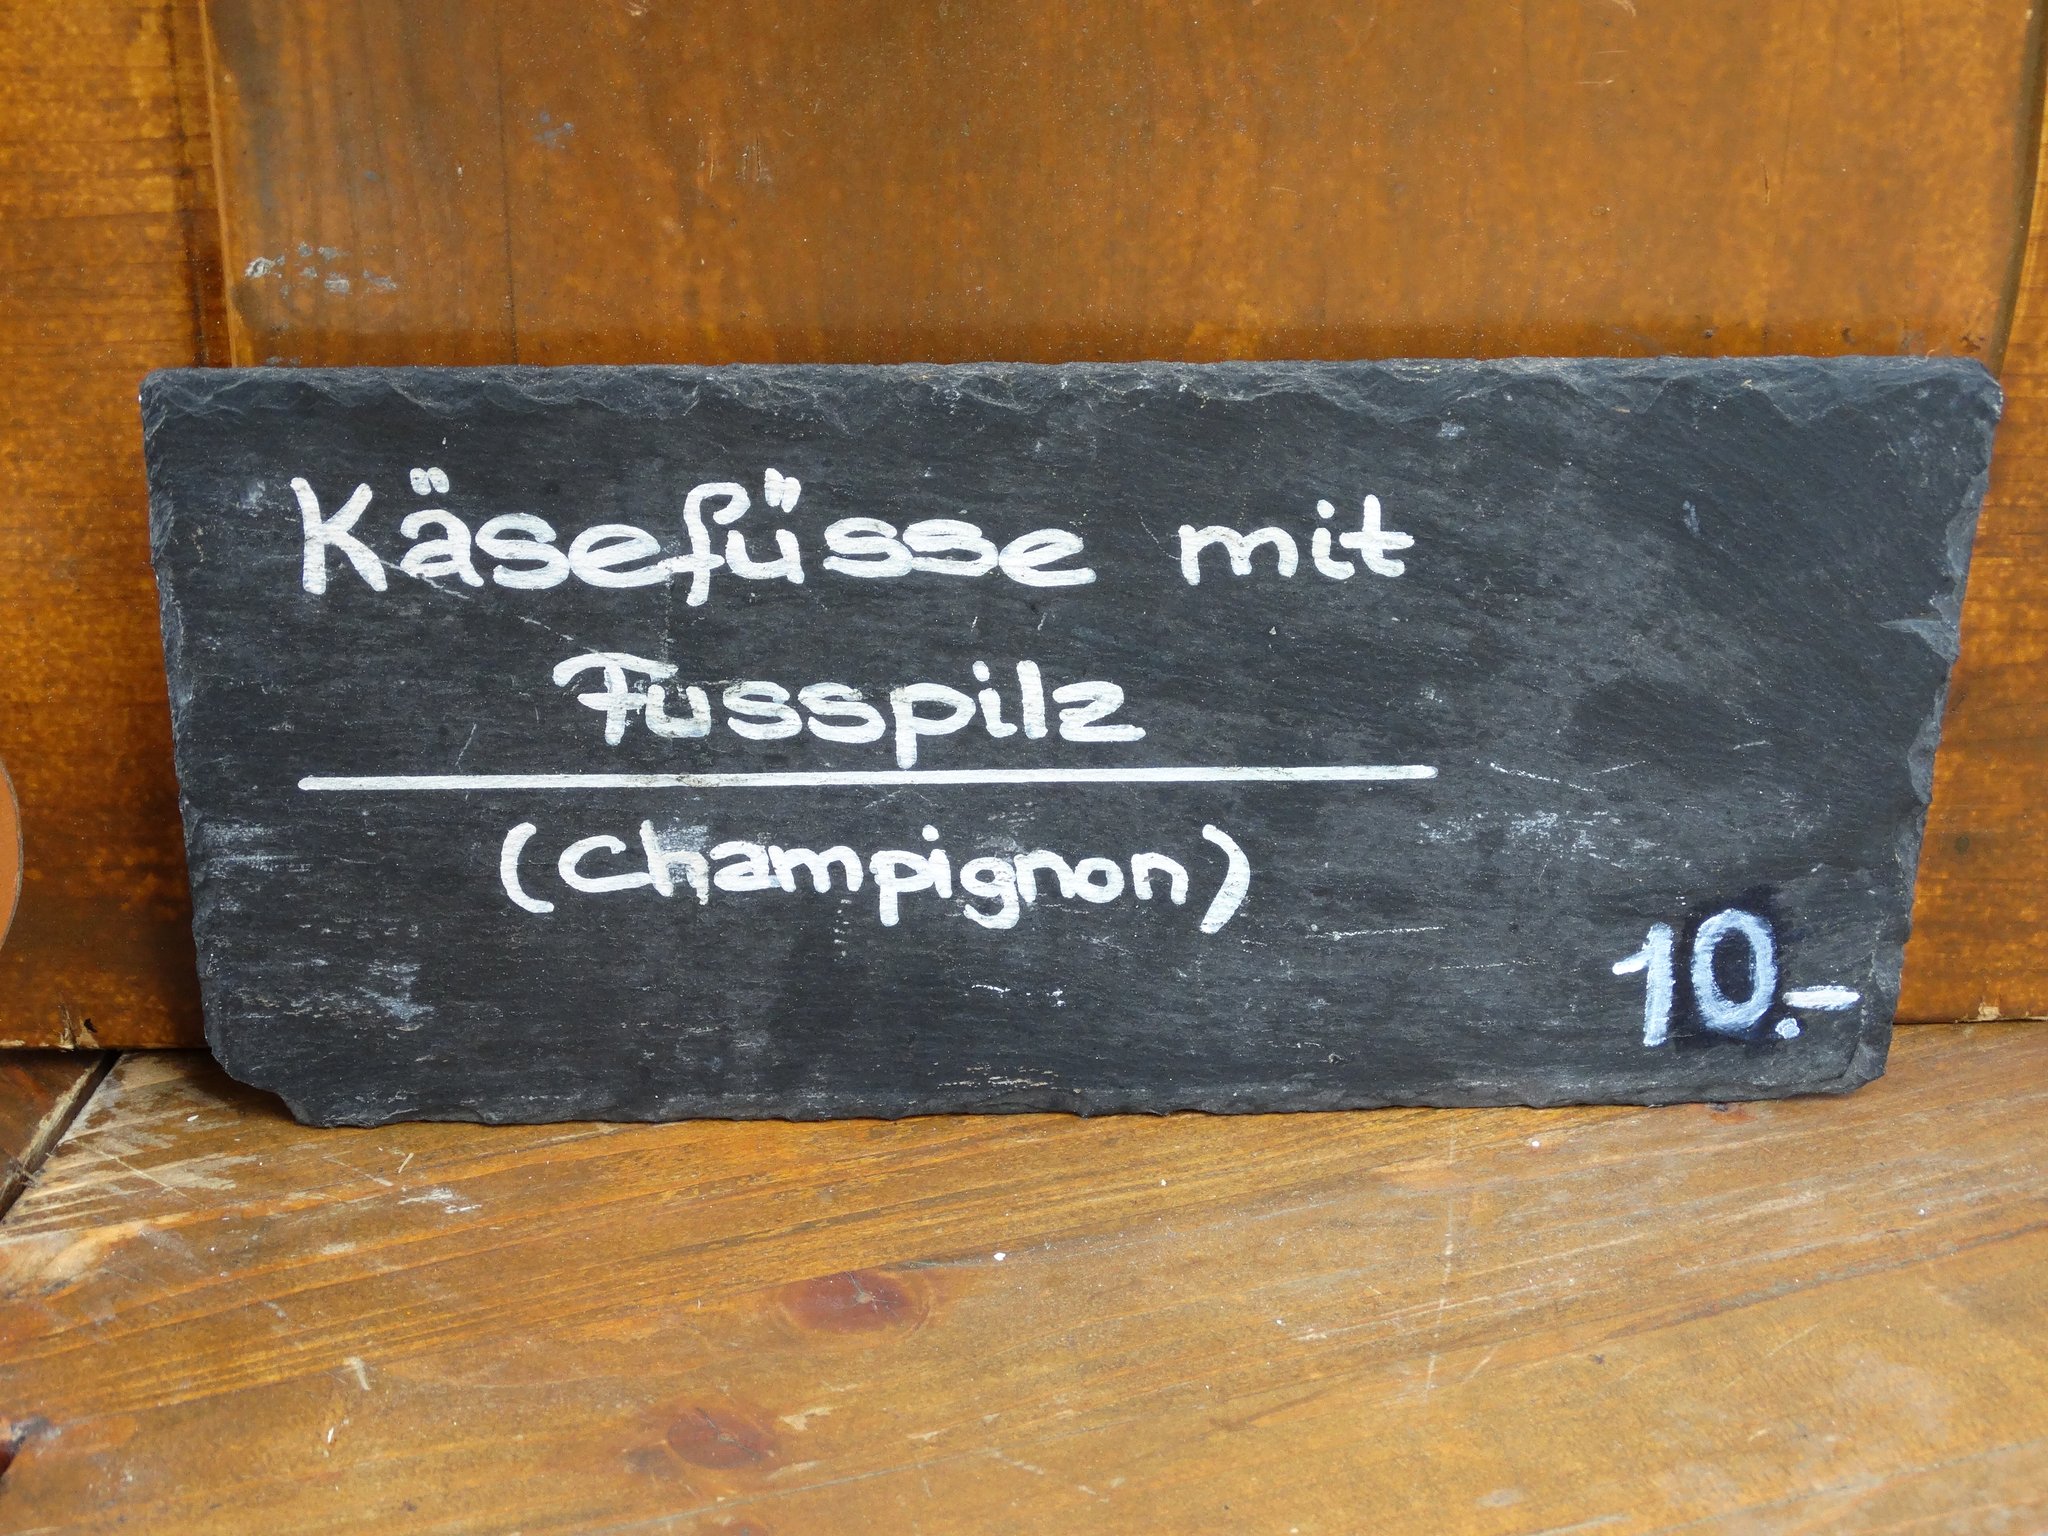 Käsefüsse mit
Fusspilz
(Champignon)
10.-